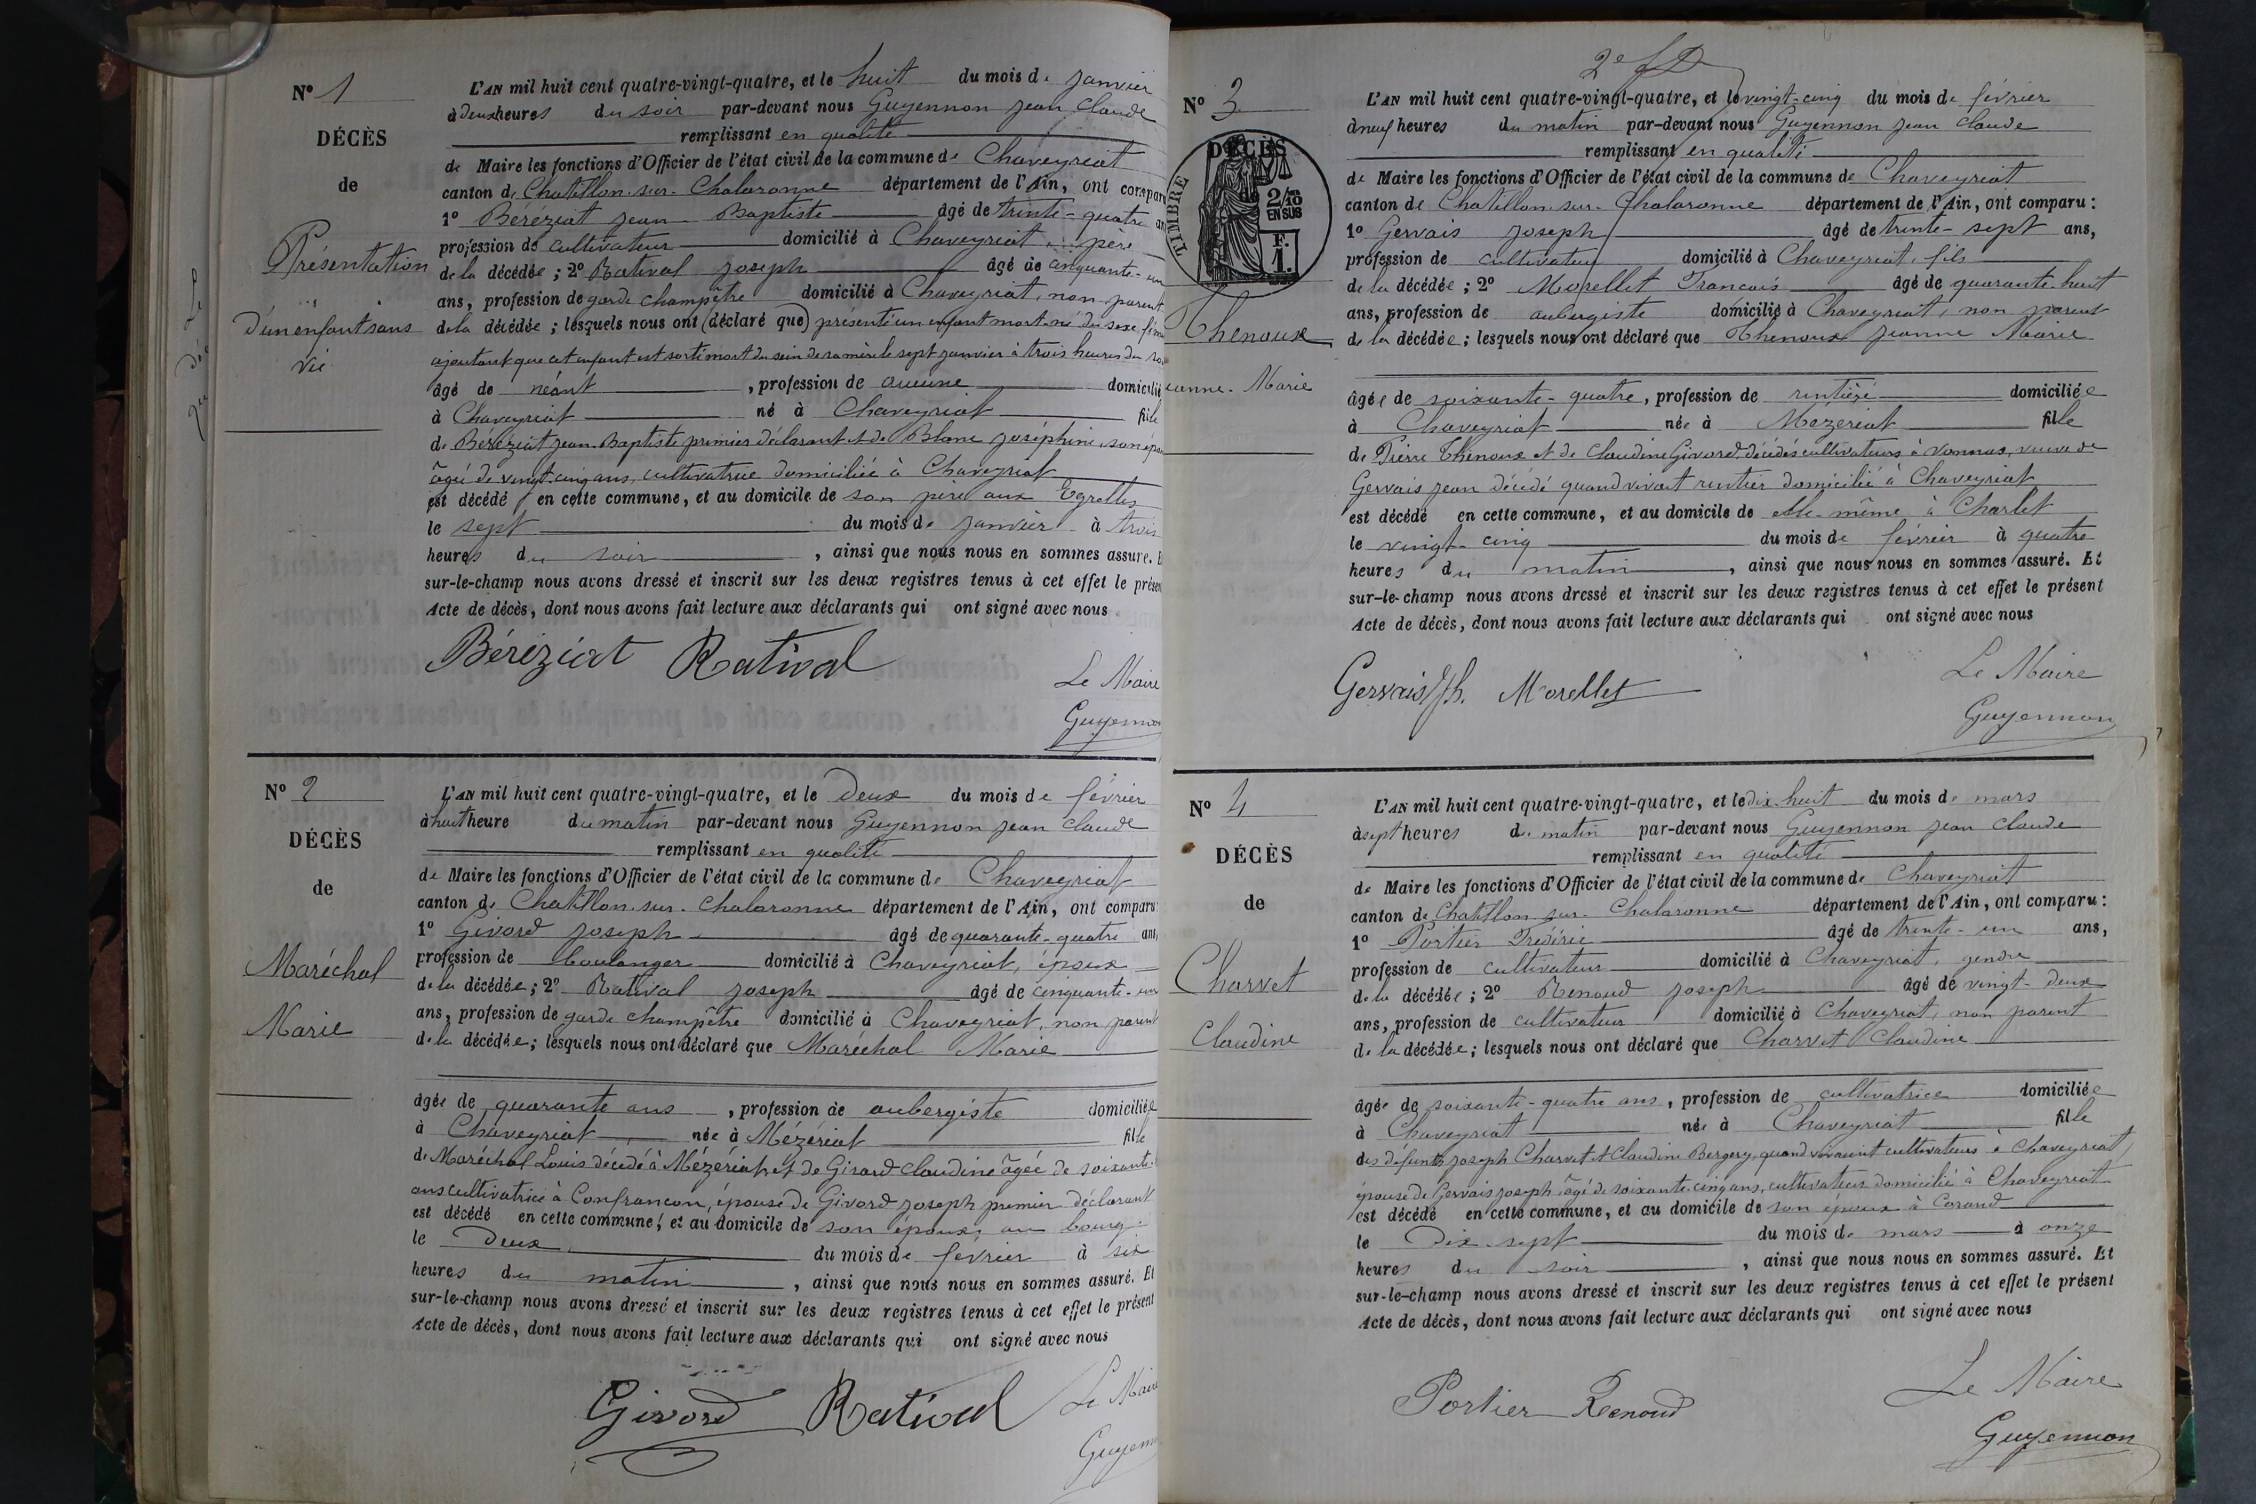 N° 1
DÉCÈS
de
Présentation
d'un enfant sans
vie
L'AN mil huit cent quatre-vingt-quatre, et le huit du mois de janvier
à deux heures du soir par-devant nous Guyennon Jean Claude
remplissant en qualité
de Maire les fonctions d'Officier de l'état civil de la commune de Chaveyriat
canton de Chatillon-sur-Chalaronne département de l'Ain, ont compar
1° Béréziat Jean Baptiste âgé de trente-quatre an
profession de cultivateur domicilié à Chaveyriat, père
de la décédée; 2° Rativol Joseph âgé de cinquante-un
ans, profession de garde champêtre domicilié à Chaveyriat, non parent
de la décédée; lesquels nous ont (déclaré que) présenté un enfant mort-né du sexe fém
ajoutant que cet enfant est sorti mort du sein de sa mère le sept janvier à trois heures du so
âgé de néant, profession de aucune domicilié
à Chaveyriat né à Chaveyriat fille
de Béréziat Jean-Baptiste premier déclarant et de Blanc Joséphine, son ép
âgée de vingt-cinq ans, cultivatrice domiciliée à Chaveyriat
est décédé en cette commune, et au domicile de son père aux Egrelles
le sept du mois de janvier à trois
heures du soir, ainsi que nous nous en sommes assuré. E
sur-le-champ nous avons dressé et inscrit sur les deux registres tenus à cet effet le présen
Acte de décès, dont nous avons fait lecture aux déclarants qui ont signé avec nous
Béréziat Rativol
Le Maire
Guyennon
N° 2
DÉCÈS
de
Maréchal
Marie
L'AN mil huit cent quatre-vingt-quatre, et le deux du mois de février
à huit heure du matin par-devant nous Guyennon Jean Claude
remplissant en qualité
de Maire les fonctions d'Officier de l'état civil de la commune de Chaveyriat
canton de Chatillon-sur-Chalaronne département de l'Ain, ont comparu
1° Givord Joseph âgé de quarante-quatre ans,
profession de boulanger domicilié à Chaveyriat, époux
de la décédée; 2° Rativol Joseph âgé de cinquante-un
ans, profession de garde champêtre domicilié à Chaveyriat, non parent
de la décédée; lesquels nous ont déclaré que Maréchal Marie
âgée de quarante ans, profession de aubergiste domiciliée
à Chaveyriat née à Mézériat fille
de Maréchal Louis décédé à Mézériat et de Girard Claudine âgée de soixante
ans cultivatrice à Confrancon, épouse de Givord Joseph premier déclarant
est décédé en cette commune, et au domicile de son époux, au bourg
le deux du mois de février à six
heures du matin, ainsi que nous nous en sommes assuré. Et
sur-le-champ nous avons dressé et inscrit sur les deux registres tenus à cet effet le présent
Acte de décès, dont nous avons fait lecture aux déclarants qui ont signé avec nous
Givord Rativol
Le Maire
Guyenn
2e ft
N° 3
DÉCÈS
TIMBRE
2/10
EN SUS
F.
1.
Thenoux
eanne-Marie
L'AN mil huit cent quatre-vingt-quatre, et le vingt-cinq du mois de février
à neuf heures du matin par-devant nous Guyennon Jean Claude
remplissant en qualité
de Maire les fonctions d'Officier de l'état civil de la commune de Chaveyriat
canton de Chatillon-sur-Chalaronne département de l'Ain, ont comparu:
1° Gervais Joseph âgé de trente-sept ans,
profession de cultivateur domicilié à Chaveyriat, fils
de la décédée; 2° Morellet Francois âgé de quarante-huit
ans, profession de aubergiste domicilié à Chaveyriat, non parent
de la décédée; lesquels nous ont déclaré que Thenoux Jeanne Marie
âgée de soixante-quatre, profession de rentière domiciliée
à Chaveyriat née à Mézériat fille
de Pierre Thenoux et de Claudine Givord, décédés cultivateurs à Vonnas, veuve de
Gervais Jean décédé quand vivait rentier domicilié à Chaveyriat
est décédé en cette commune, et au domicile de elle-même à Charlet
le vingt-cinq du mois de février à quatre
heures du matin, ainsi que nous nous en sommes assuré. Et
sur-le-champ nous avons dressé et inscrit sur les deux registres tenus à cet effet le présent
Acte de décès, dont nous avons fait lecture aux déclarants qui ont signé avec nous
Gervais Jh. Morellet
Le Maire
Guyennon
N° 4
DÉCÈS
de
Charvet
Claudine
L'AN mil huit cent quatre-vingt-quatre, et le dix-huit du mois de mars
à sept heures du matin par-devant nous Guyennon Jean Claude
remplissant en qualité
de Maire les fonctions d'Officier de l'état civil de la commune de Chaveyriat
canton de Chatillon-sur-Chalaronne département de l'Ain, ont comparu:
1° Portier Frédéric âgé de trente-un ans,
profession de cultivateur domicilié à Chaveyriat, gendre
de la décédée; 2° Renoud Joseph âgé de vingt-deux
ans, profession de cultivateur domicilié à Chaveyriat, non parent
de la décédée; lesquels nous ont déclaré que Charvet Claudine
âgée de soixante-quatre ans, profession de cultivatrice domiciliée
à Chaveyriat née à Chaveyriat fille
des défunts Joseph Charvet et Claudine Bergery, quand vivaient cultivateurs à Chaveyriat,
épouse de Gervais Joseph âgé de soixante-cinq ans, cultivateur domicilié à Chaveyriat
est décédé en cette commune, et au domicile de son époux à Corand
le dix-sept du mois de mars à onze
heures du soir, ainsi que nous nous en sommes assuré. Et
sur-le-champ nous avons dressé et inscrit sur les deux registres tenus à cet effet le présent
Acte de décès, dont nous avons fait lecture aux déclarants qui ont signé avec nous
Portier Renoud
Le Maire
Guyennon